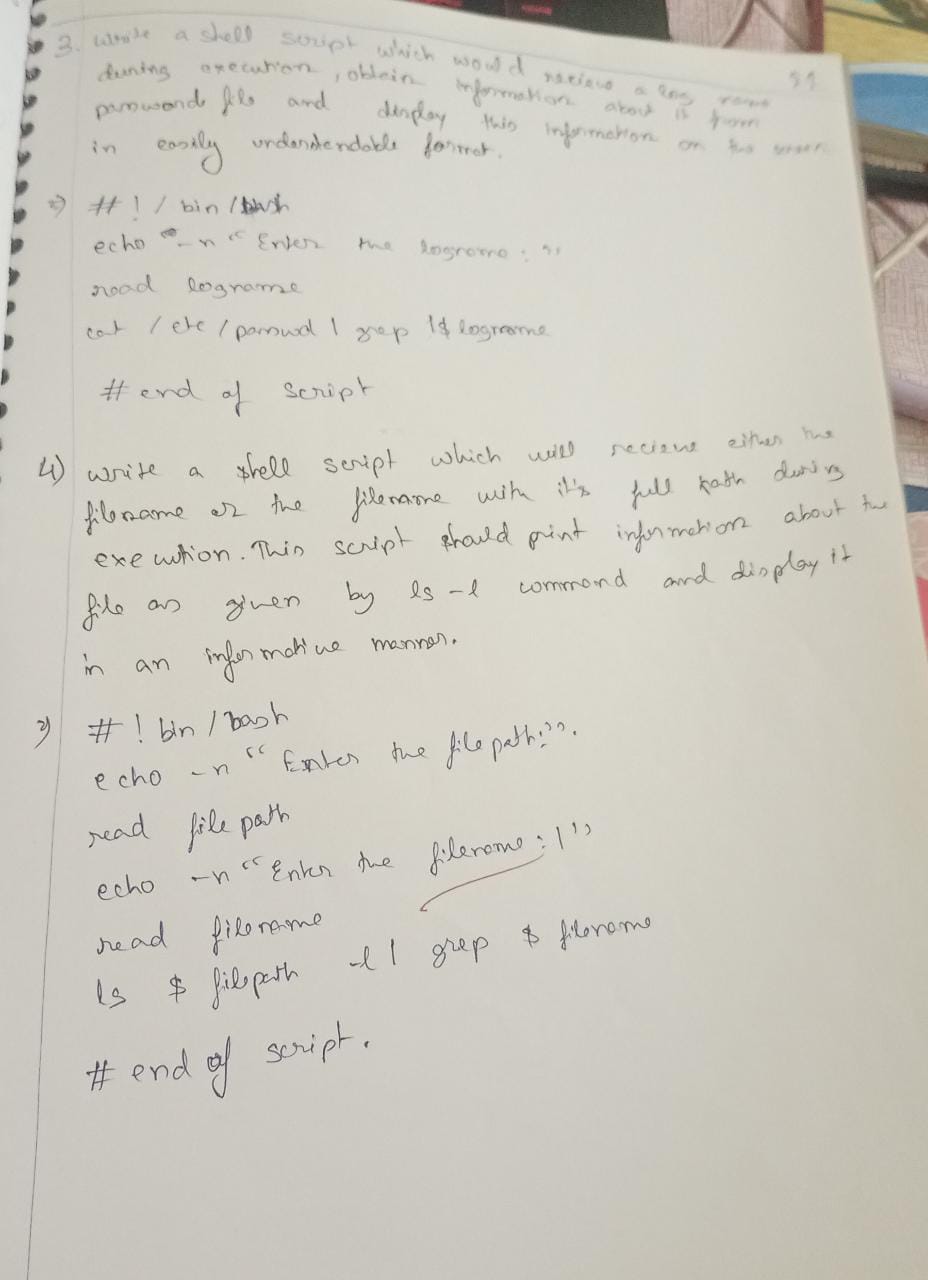 3. Write a shell script which would recieve a log name
during execution, obtain information about it from
password file and display this information on the screen
in easily understandable format.
#!/bin/bash
echo -n "Enter the logname:"
read logname
cat /etc/passwd | grep $logname
# end of script
4) write a shell script which will recieve either the
filename or the filename with it's full path during
execution. This script should print information about the
file as given by ls -l command and display it
in an informative manner.
#! bin/bash
echo -n "Enter the filepath:".
read filepath
echo -n "Enter the filename:|"
read filename
ls $filepath -l | grep $filename
# end of script.